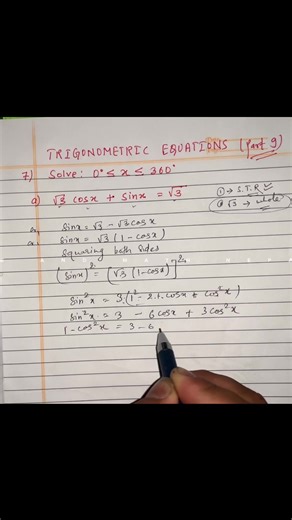 TRIGONOMETRIC EQUATIONS (Part 9)
7) Solve: 0° ≤ x ≤ 360°
a) √3 cosx + sinx = √3
① → S.T.R
② √3 → whole
sinx = √3 - √3 cosx
sinx = √3 (1 - cosx)
Squaring both sides
(sinx)² = [√3 (1 - cosx)]²
sin²x = 3(1² - 2.1.cosx + cos²x)
sin²x = 3 - 6 cosx + 3cos²x
1 - cos²x = 3 - 6